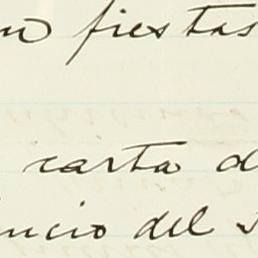 fiestas
carta d
ncio del